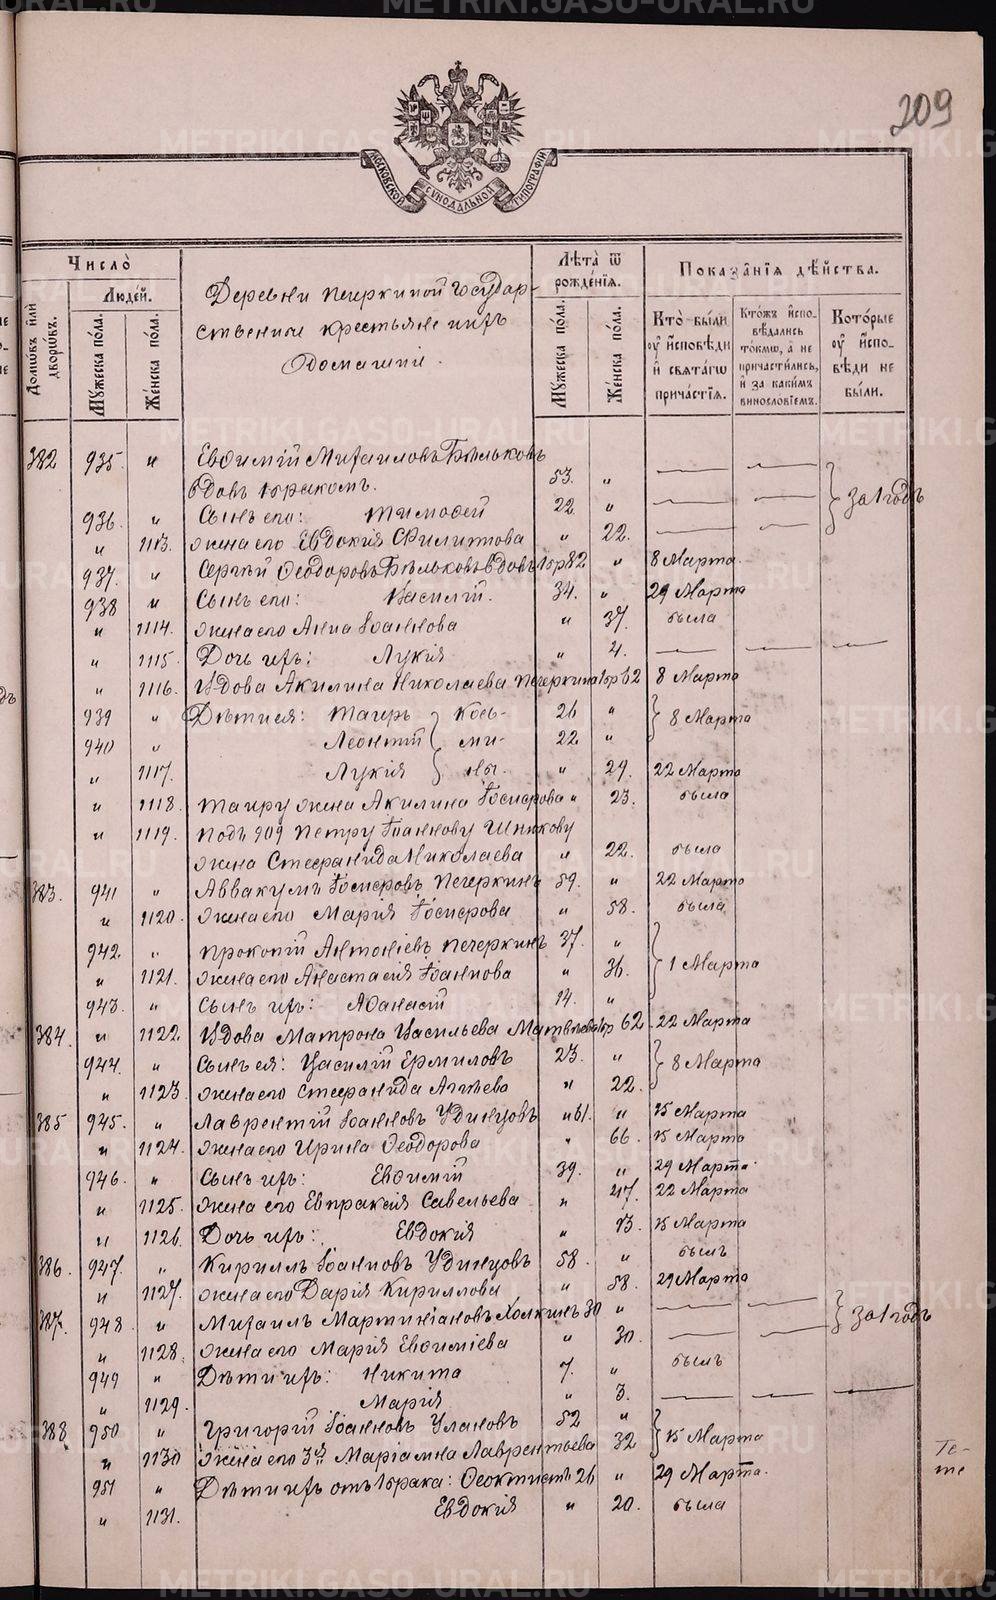 METRIKI.GASO-URAL.RU
209
МОСКОВСКОЙ СУНОДАЛЬНОЙ ТИПОГРАФІИ
Число̀
Людей.
Домѡвъ или дворѡвъ.
Мꙋжеска пола.
Женска пола.
Деревни Печеркиной Государ-
ственные крестьяне и ихъ
домашніе.
Лѣта ѿ рожденїѧ.
Мꙋжеска пола.
Женска пола.
Показанїѧ дѣйства.
Кто были оу исповѣди и свѧтагѡ причастїѧ.
Ктожъ исповѣдались токмѡ, а не причастились, и за какимъ винословїемъ.
Которые оу исповѣди не были.
382 935. " Евѳимій Михаиловъ Бѣльковъ
вдовъ 1 бракомъ. 53. " за 1 годъ
936. " Сынъ его: Тимоѳей 22 "
" 1113. жена его Евдокія Филиппова " 22.
937. " Сергѣй Ѳеодоровъ Бѣльковъ вдовъ 1 бр 82 " 8 Марта.
938 " Сынъ его: Василій. 34. " 29 Марта
" 1114. жена его Анна Іоаннова " 37. была
" 1115. Дочь ихъ: Лукія " 4.
" 1116. Вдова Акилина Николаева Печеркина 1 бр 62 8 Марта
939 " Дѣти ея: Тагиръ Кось- 26 " 8 Марта
940 " Леонтій ми- 22 "
" 1117. Лукія ны. " 29. 22 Марта
" 1118. Тагиру жена Акилина Іосифова " 23. была
" 1119. Подъ 909 Петру Іоаннову
жена Стефанида Николаева " 22. была
383. 941 " Аввакумъ Іосифовъ Печеркинъ 59. " 22 Марта
" 1120. жена его Марія Іосифова " 58. была
942. " Прокопій Антоніевъ Печеркинъ 37. "
" 1121. жена его Анастасія Іоаннова " 36. 1 Марта
943. " Сынъ ихъ: Аѳанасій 14. "
384. " 1122. Вдова Матрона Васильева Матвѣева 1 бр 62. 22 Марта
944. " Сынъ ея: Василій Ермиловъ 23. " 8 Марта
" 1123. жена его Стефанида Аггѣева " 22.
385 945. " Лаврентій Іоанновъ Удинцовъ 61. " 15 Марта
" 1124. жена его Ирина Ѳеодорова " 66. 15 Марта
946. " Сынъ ихъ: Евѳимій 39. " 29 Марта.
" 1125. жена его Евпраксія Савельева " 47. 22 Марта
" 1126. Дочь ихъ: Евдокія " 13. 15 Марта
386. 947. " Кириллъ Іоанновъ Удинцовъ 58. " былъ
" 1127. жена его Дарія Кириллова " 58. 29 Марта
387. 948. " Михаилъ Мартиніановъ Холкинъ 30 " за 1 годъ
" 1128. жена его Марія Евѳиміева " 30.
949 " Дѣти ихъ: Никита 7. " былъ
" 1129. Марія " 3.
388. 950. " Григорій Іоанновъ Улановъ 52 "
" 1130 жена его 3й Маріамна Лаврентьева 32 15 Марта
951 " Дѣти ихъ отъ 1 брака: Ѳеоктистъ 26 " 29 Марта.
" 1131. Евдокія " 20. была